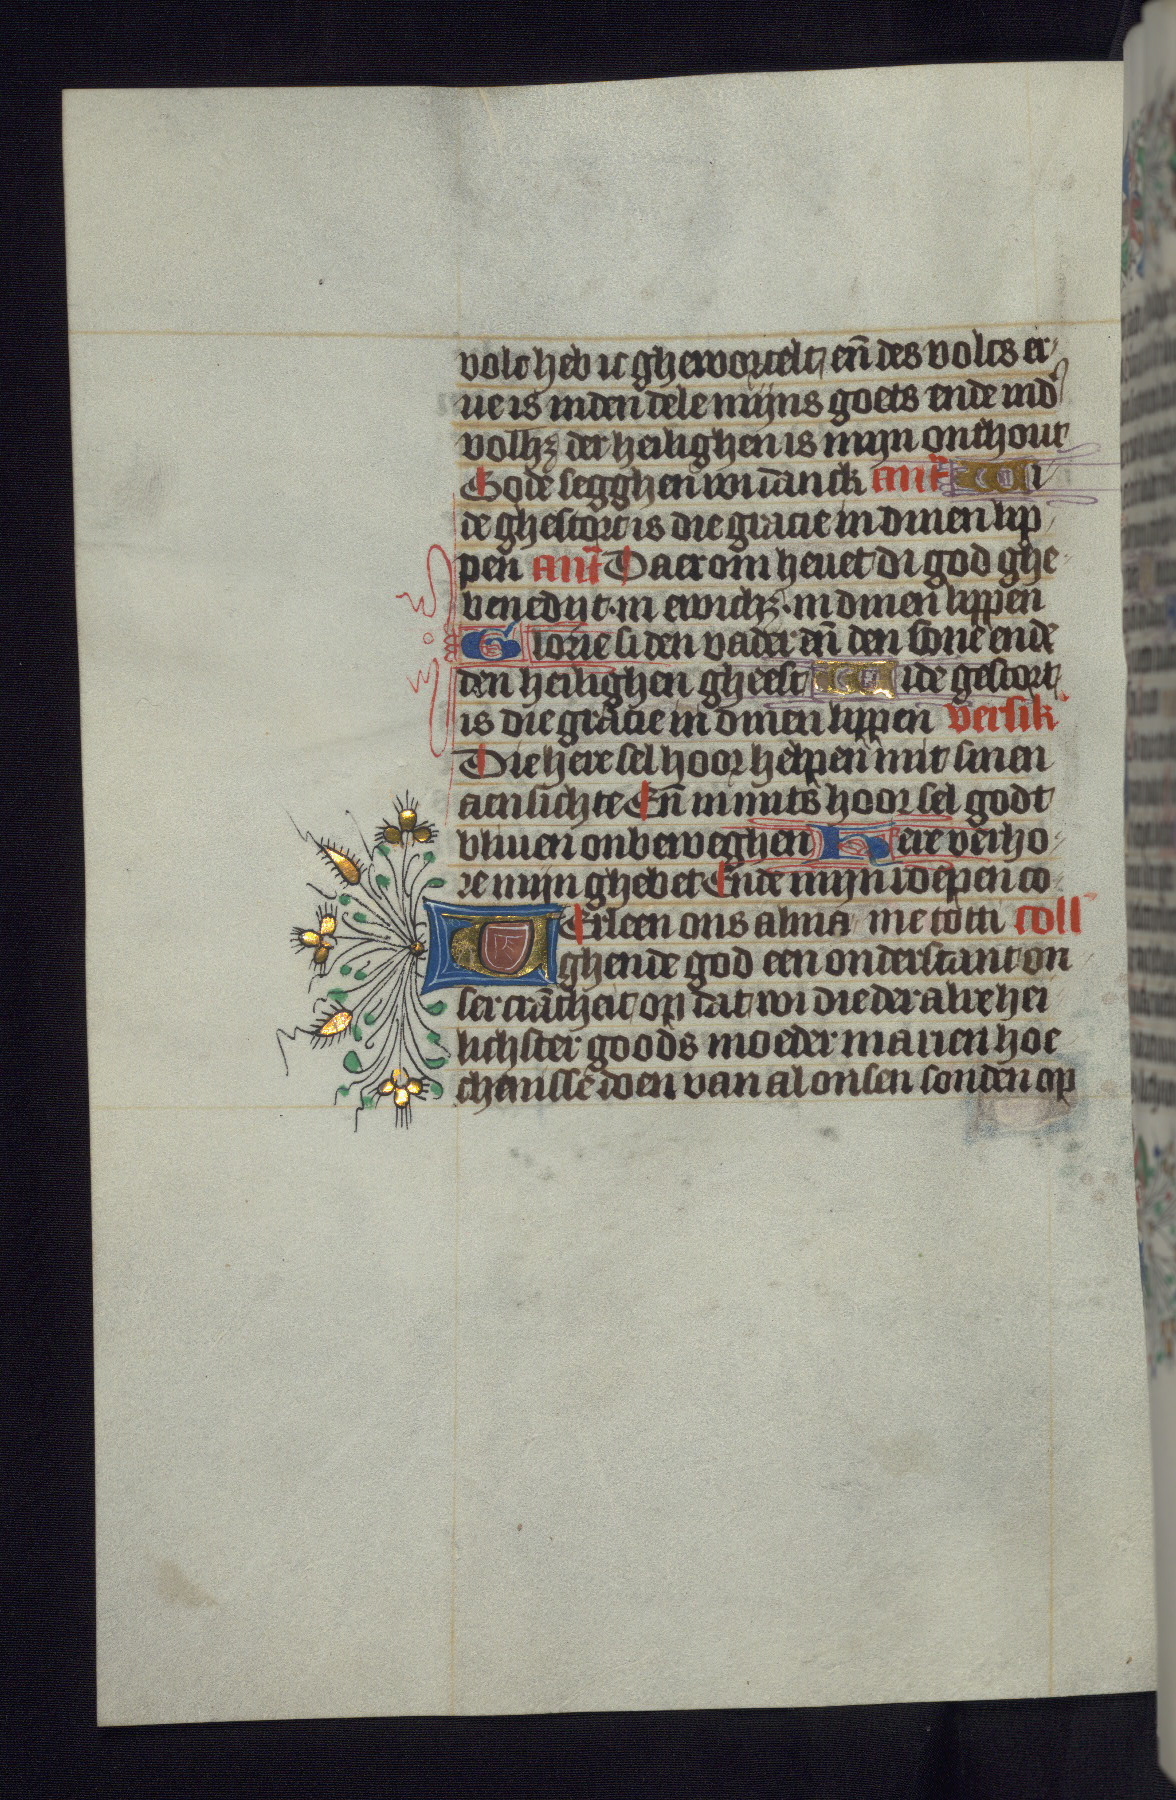 volc heb ic ghewortelt, en̄ des volcs er-
ue is in den dele mijns goets ende in d'
volhz der heilighen is mijn onthout
Gode segghen wi danck anī Wi
de ghestort is die gracie in dinen lip
pen anī Daer om heuet di god ghe-
benedijt in ewichz in dinen lippen
Glorie si den vader en̄ den sone ende
den heilighen gheest Wide gestort
is die gracie in dinen lippen versik
Die here sel hoor helpen mit sinen
aensichte En̄ in mits hoor sel godt
bliuen onbeweghen Here verho-
re mijn ghebet Ende mijn roepen co
VErleen ons alma me tottī coll
ghende god een onderstant on
ser crācheit op dat wi die der alre hei
lichster goods moeder marien hoe
chenisse doen van al onsen sonden op